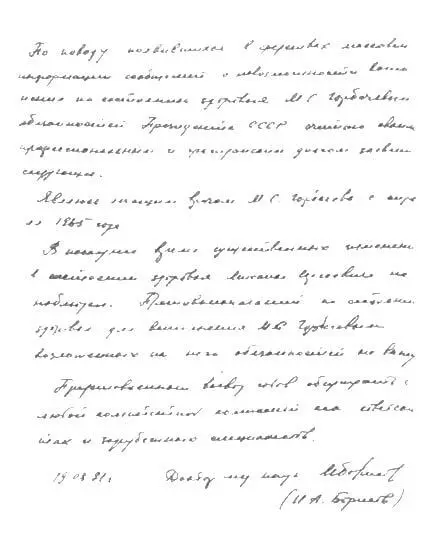 По поводу появившихся в средствах массовой
информации сообщений о невозможности выпол
нения по состоянию здоровья М С Горбачевым
обязанностей Президента СССР считаю своим
профессиональным и гражданским долгом заявить
следующее.
Являюсь лечащим врачом М С Горбачева с апре
ля 1985 года
В настоящее время существенных изменений
в состоянии здоровья Михаила Сергеевича не
наблюдал. Противопоказаний по состоянию
здоровья для выполнения М С Горбачевым
возложенных на него обязанностей не вижу
Профессиональный вывод готов обсуждать с
любой компетентной комиссией из советск
их и зарубежных специалистов.
19 08 91 г. Доктор мед наук
(И А. Борисов)